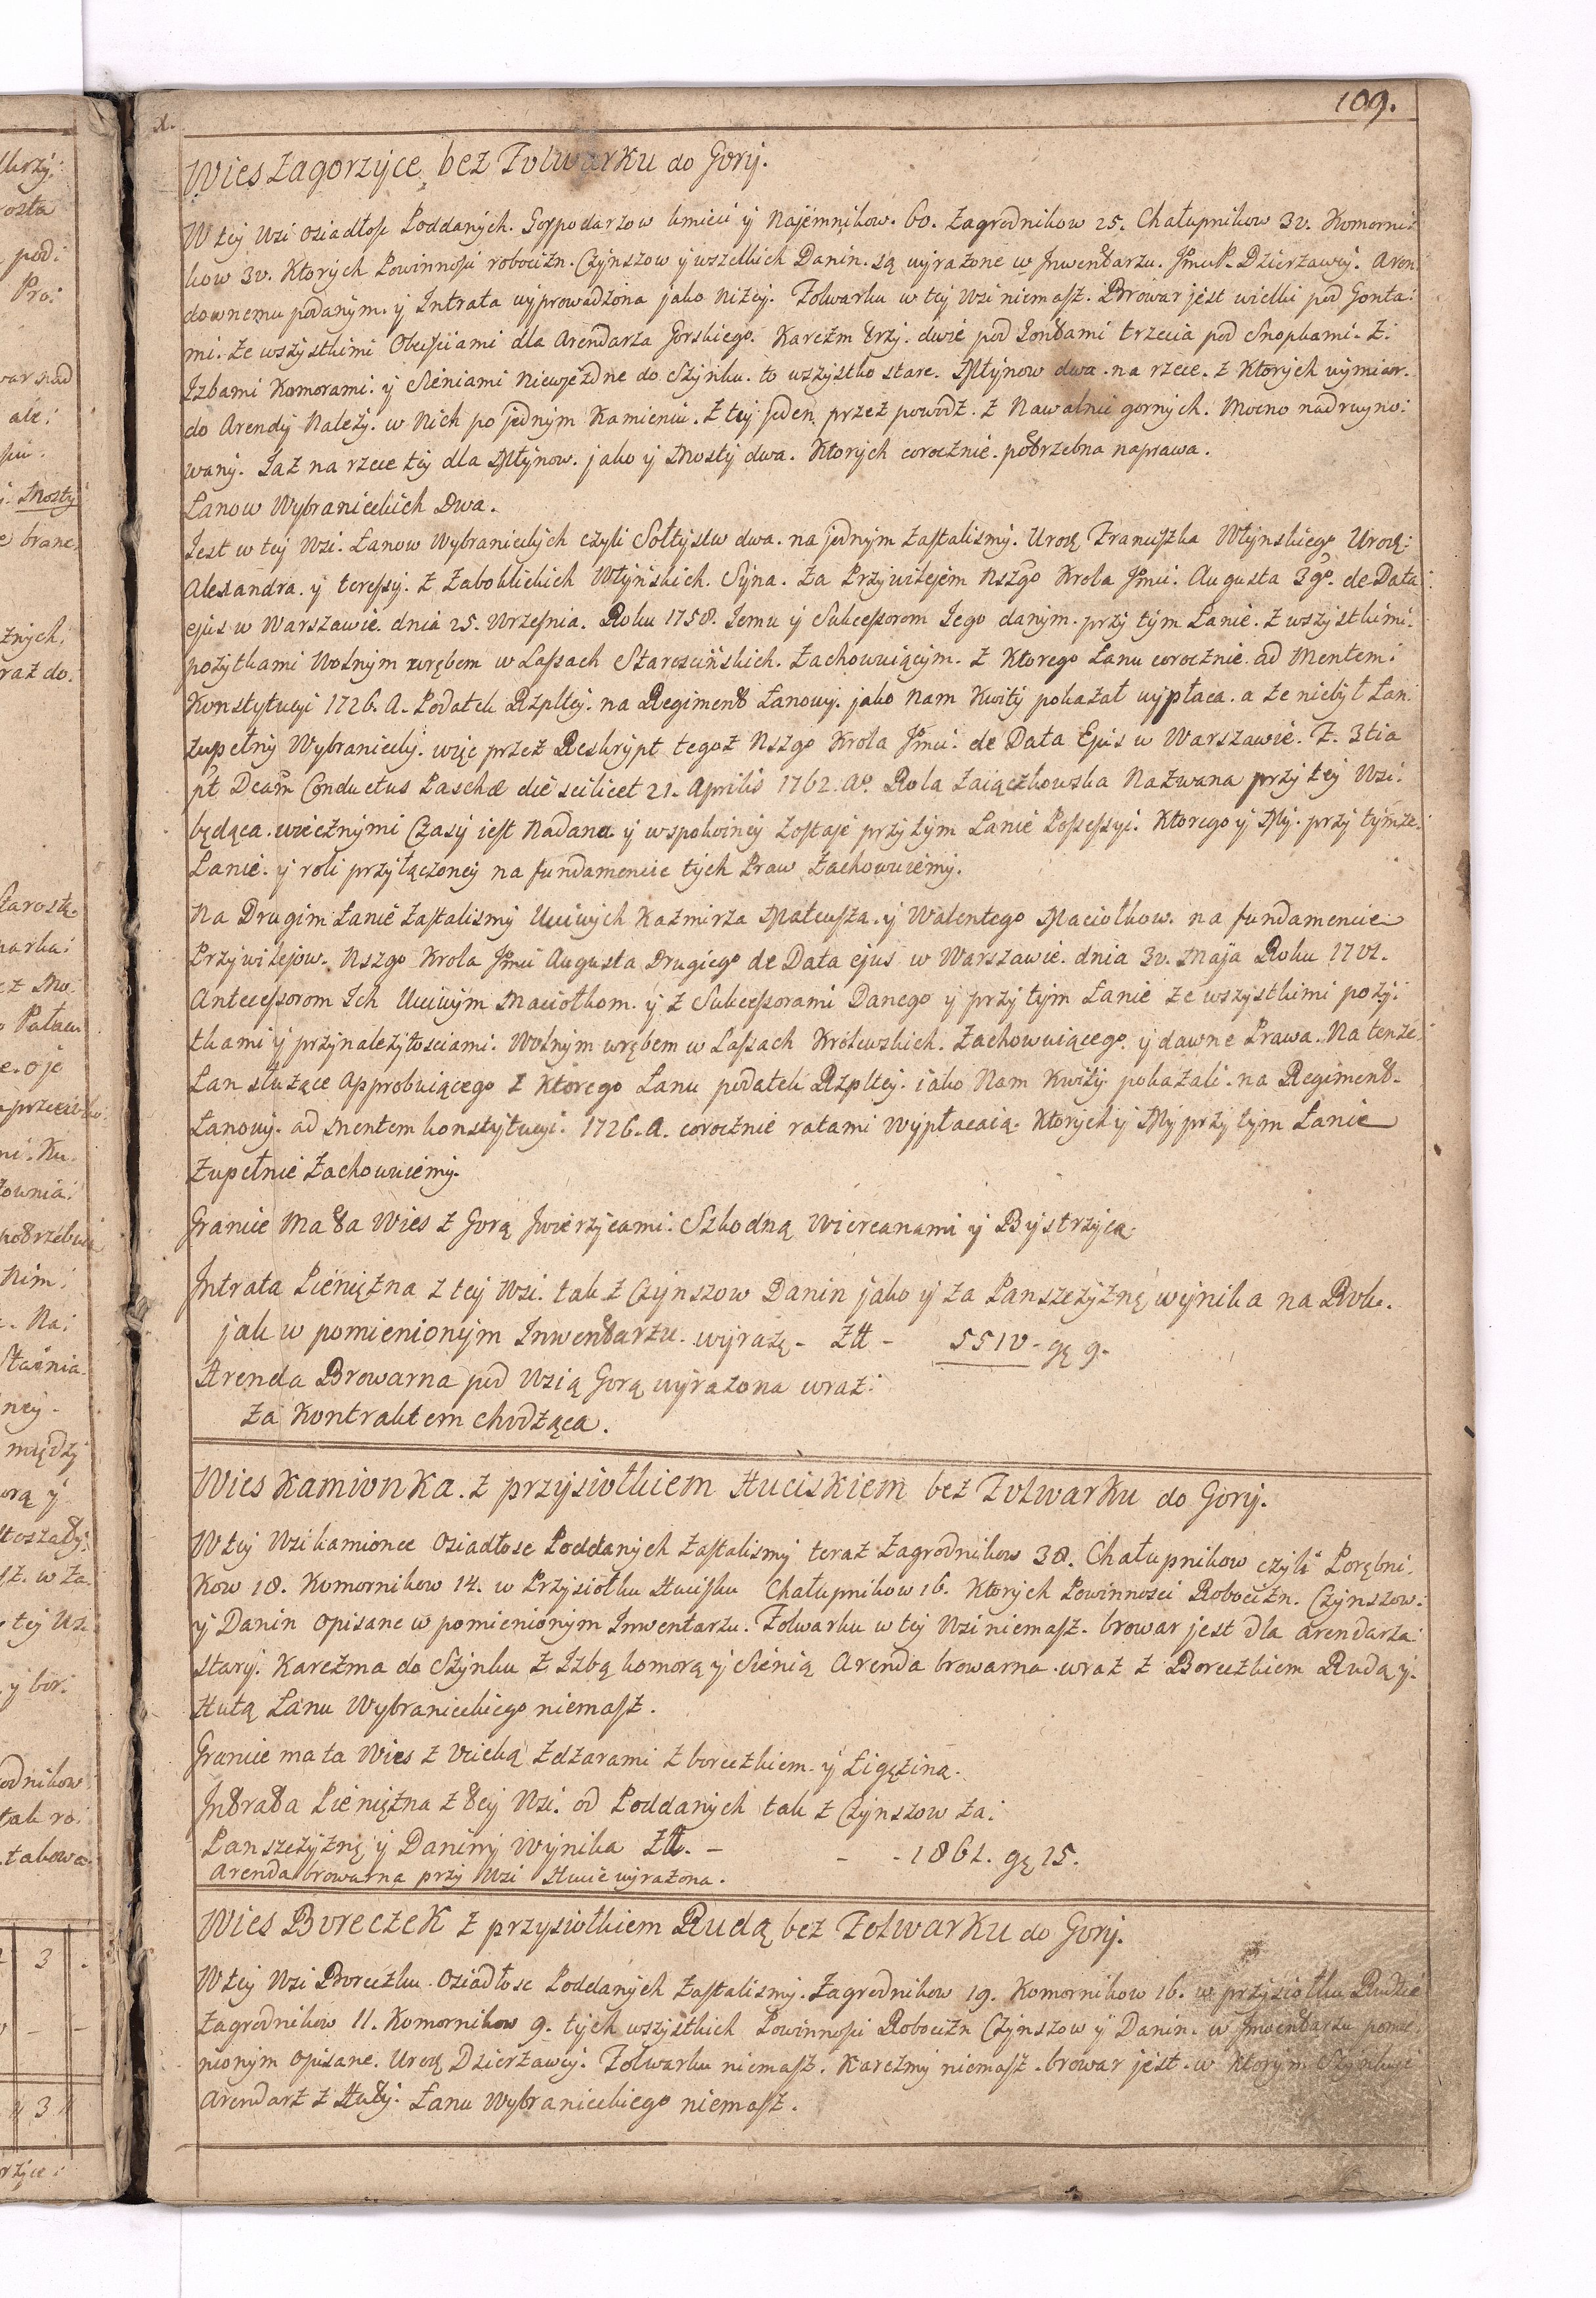 109.
Wies Zagorzyce bez Folwarku do Gory.
W tey Wsi osiadłosc Poddanych. Gospodarzow kmieci y Najemnikow. 60. Zagrodnikow 25. Chałupnikow 30. Komorni:
kow 30. Ktorych Powinnosci robocizn. Czynszow y wszelkich Danin. są wyrażone w Inwentarzu. JmuP. Dzierzawcy. Aren:
downemu podanym. y Intrata wyprowadzona jako niżey. Folwarku w tey Wsi niemasz. Browar jest wielki pod Gonta:
mi. Ze wszystkimi Obeysciami dla Arendarza Gorskiego. Karczm trzy. dwie pod Gontami trzecia pod Snopkami. Z:
Izbami Komorami. y Sieniami Niewjezdne do Szynku. to wszystko stare. Młynow dwa. na rzece. z Ktorych wymiar.
do Arendy Należy. w Nich po jednym Kamieniu. Z tey jeden przez powodz. z Nawalnic gornych. Mocno nadruyno:
wany. Jaz na rzece tey dla Młynow. jako y Mosty dwa. Ktorych corocznie. potrzebna naprawa.
Łanow Wybranieckich Dwa.
Jest w tey Wsi. Łanow Wybranieckich czyli Sołtystw dwa. na jednym Zastalismy. Urodz Franciszka Włynskiego Urodz:
Alexandra. y Teressy. z Zaboklickich Włyńskich. Syna. Za Przywilejem Nszgo Krola Jmci. Augusta 3go. de Data:
ejus w Warszawie. dnia 25. Wrzesnia. Roku 1758. Jemu y Sukcessorom Jego danym. przy tym Łanie. Z wszystkimi.
pożytkami Wolnym wrębem w Lassach Staroscińskich. Zachowuiącym. Z Ktorego Łanu corocznie. ad Mentem:
Konstytucyi 1726. A. Podatek Rzpltey. na Regiment Łanowy. jako nam Kwity pokazał wypłaca. a ze niebył Łan.
zupełny Wybraniecky. więc przez Reskrypt tegoż Nszgo Krola Jmci: de Data Ejus w Warszawie. F. 3tia
pt Dcam Conductus Paschæ die scilicet 21. Aprilis 1762. Ao. Rola Zaiączkowska Nazwana przy tey Wsi:
będąca. wiecznymi Czasy iest Nadana y wspokoiney zostaje przy tym Łanie Possessyi. Ktorego y My. przy tymże:
Łanie. y roli przyłączoney na fundamencie tych Praw Zachowuiemy.
Na Drugim Łanie Zastalismy Uczciwych Kazmirza Mateusza. y Walentego Maciołkow. na fundamencie
Przywilejow. Nszgo Krola Jmci Augusta Drugiego de Data ejus w Warszawie. dnia 30. Maja Roku 1701.
Antecessorom Ich Uczciwym Maciołkom. y z Sukcessorami Danego y przy tym Łanie ze wszystkimi poży:
tkami y przynależytosciami. Wolnym wrębem w Lassach Królewskich. Zachowuiącego y dawne Prawa. Na tenże:
Łan służące Approbuiącego z Ktorego Łanu podatek Rzpltey. iako Nam Kwity pokazali. na Regiment.
Łanowy. ad Mentem konstytucyi. 1726. A. corocznie ratami Wypłacaią. Ktorych y My przy tym Łanie
Zupełnie Zachowuiemy.
Granice Ma ta Wies z Gorą Jwierzycami. Szkodną Wiercanami y Bystrzycą.
Intrata Pieniężna z tey Wsi. tak z Czynszow Danin jako y za Panszczyznę wynika na Rok.
jak w pomienionym Inwentarzu. wyrażę. Złł - 5510 - gę 9.
Arenda Browarna pod Wsią Gorą wyrazona wraz:
Za Kontraktem chodząca.
Wies Kamionka. z przysiołkiem Huciskiem bez Folwarku do Gory.
W tey Wsi kamionce Osiadłosc Poddanych zastalismy teraz Zagrodnikow 38. Chałupnikow czyli Porębni:
kow 18. Komornikow 14. w Przysiołku Hucisku Chałupnikow 16. Ktorych Powinnosci Robocizn. Czynszow:
y Danin Opisane w pomienionym Inwentarzu. Folwarku w tey Wsi niemasz. browar jest dla arendarza:
stary. Karczma do Szynku z Izbą komorą y Sienią Arenda browarna. wraz z Boreczkiem Rudą y.
Hutą Łanu Wybranieckiego niemasz.
Granice ma ta Wies z Ocieką Zdzarami z boreczkiem. y Ligęziną.
Intrata Pieniężna z tey Wsi. od Poddanych tak z Czynszow za:
Panszczyznę y Daniny Wynika Złł. - - - 1861. gę 15.
Arenda browarna przy Wsi Hucie wyrazona.
Wies Boreczek z przysiołkiem Rudą bez Folwarku do Gory.
W tey Wsi Boreczku. Osiadłosc Poddanych Zastalismy. Zagrodnikow 19. Komornikow 16. w przysiołku Rudzie
Zagrodnikow 11. Komornikow 9. tych wszystkich Powinnosci Robocizn Czynszow y Danin. w Inwentarzu pomie:
nionym opisane. Urodz Dzierzawcy. Folwarku niemasz. Karczmy niemasz. browar jest. w Ktorym Szynkuje
Arendarz z Huty. Łanu Wybranieckiego niemasz.